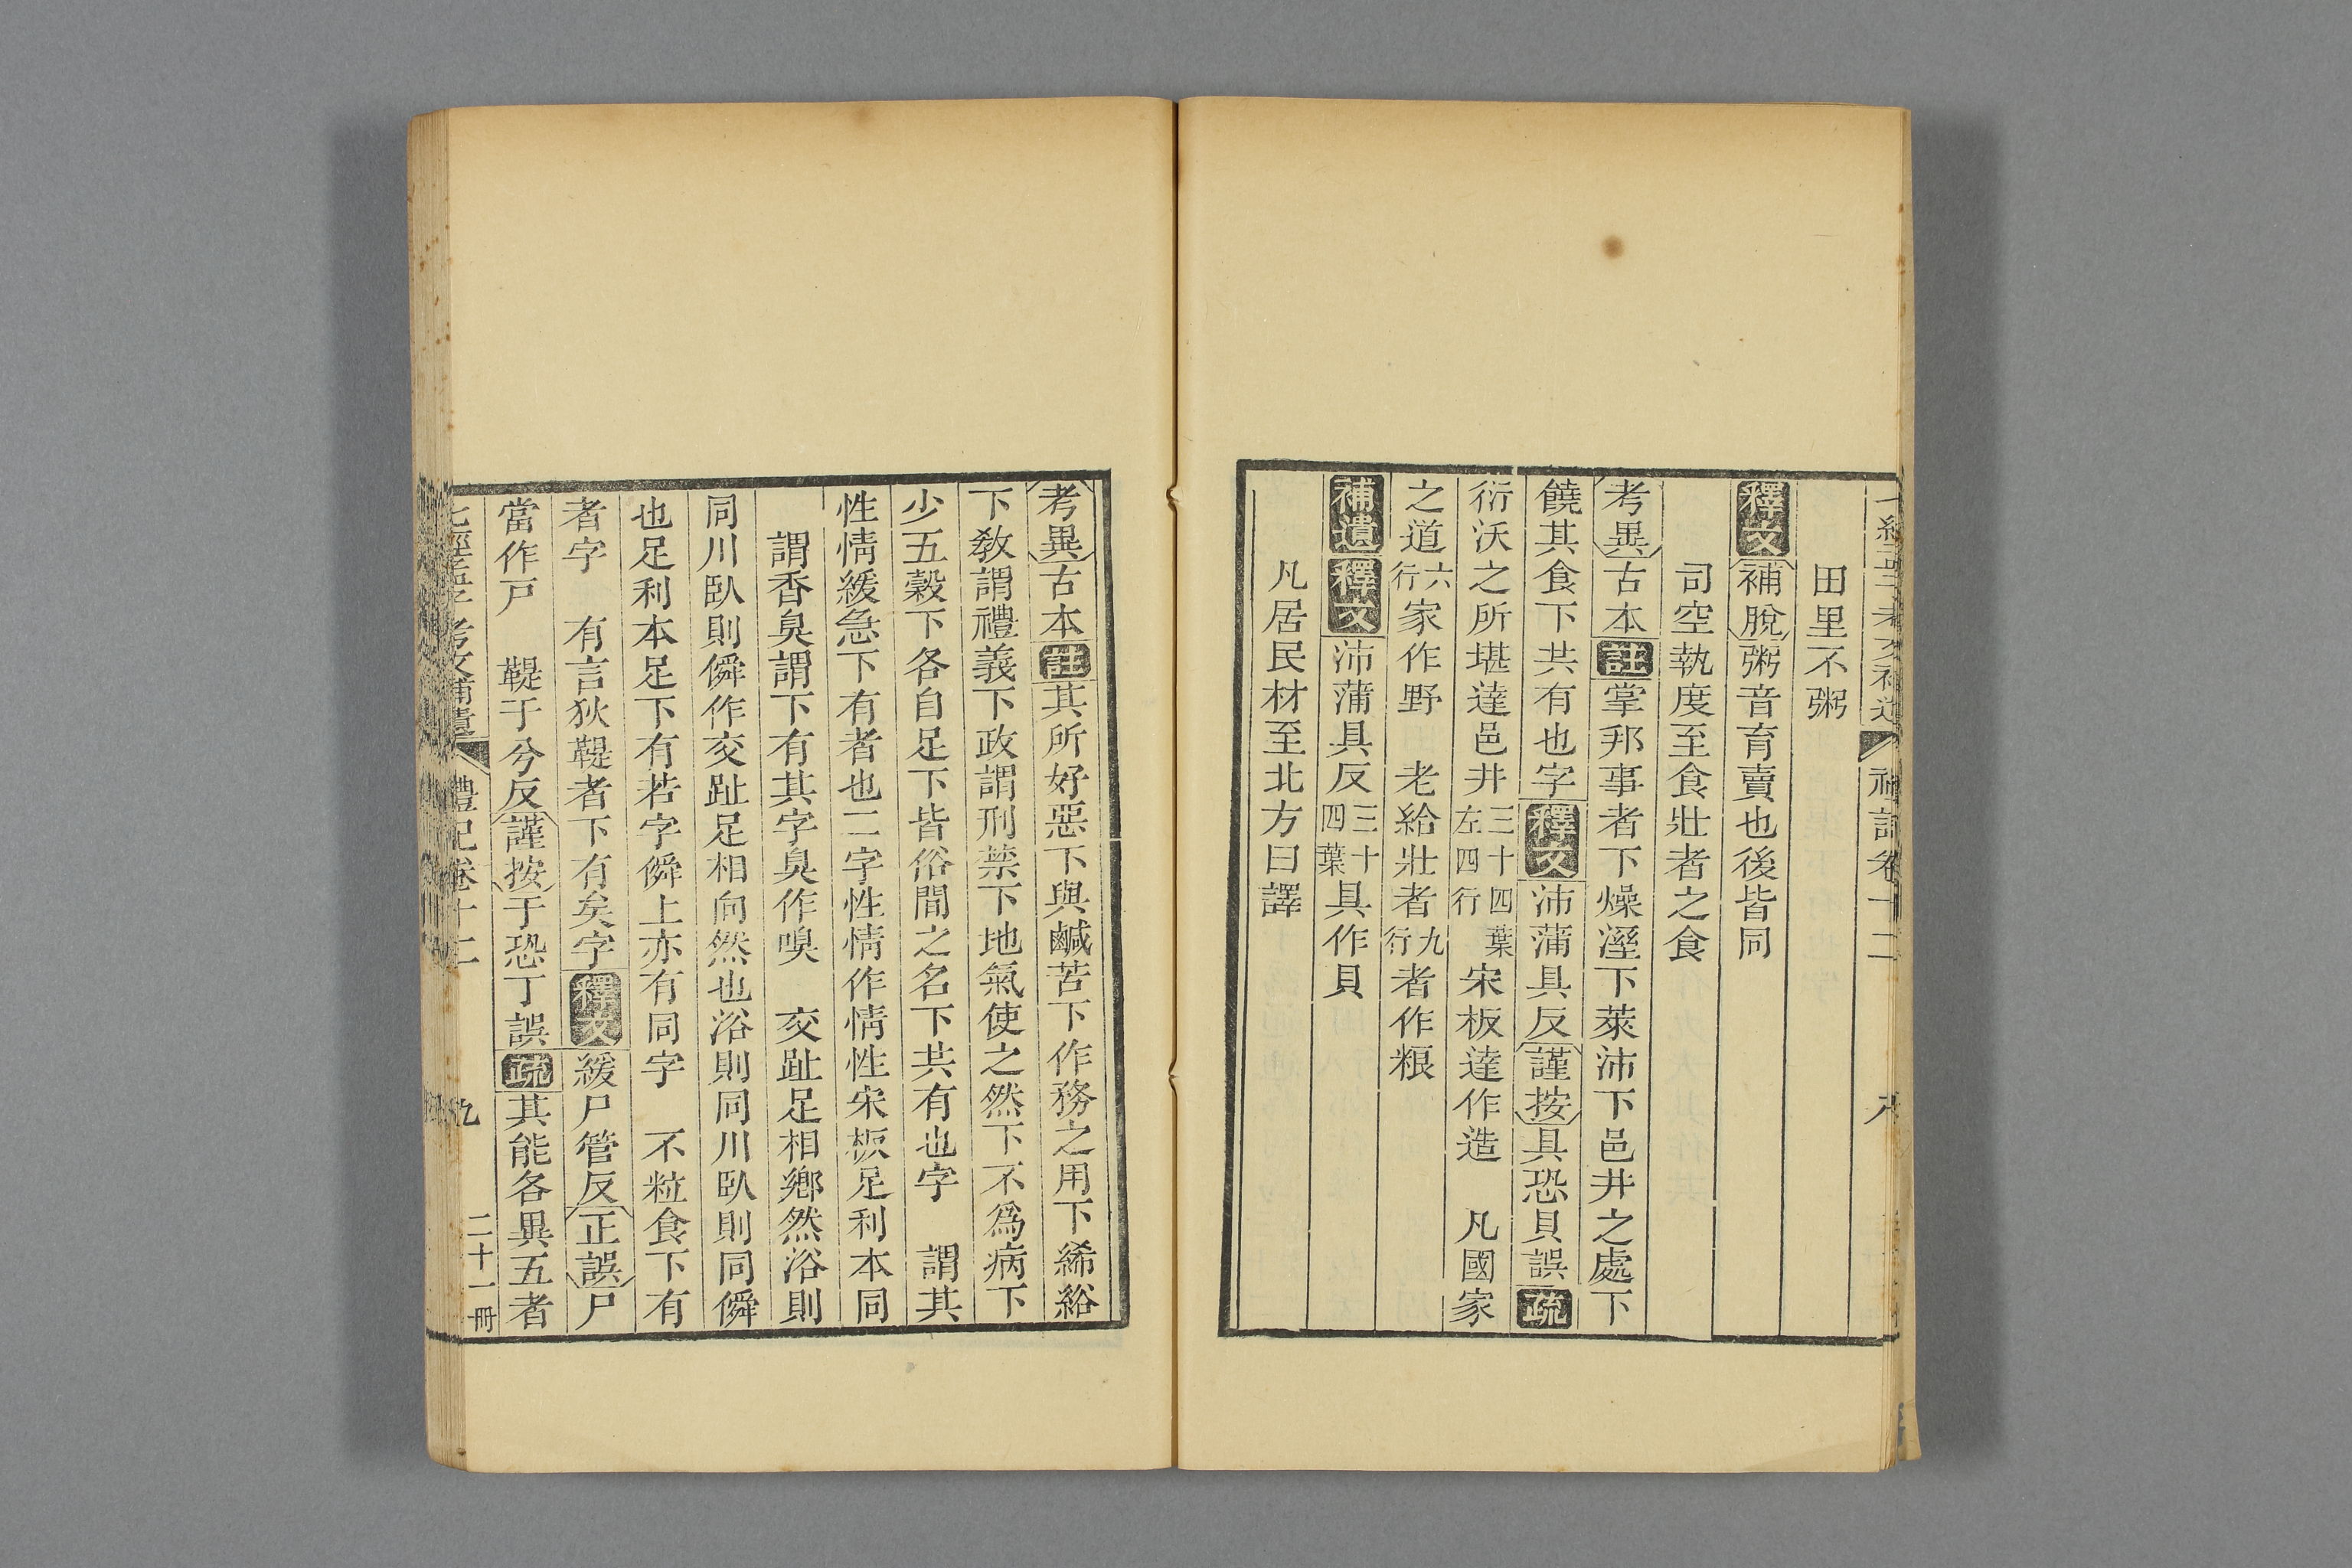 七經孟子考文補遺 禮記卷十二 八
田里不粥
釋文補脫粥音育賣也後皆同
司空執度至食壯者之食
考異古本註掌邦事者下燥溼下萊沛下邑井之處下
饒其食下共有也字釋文沛蒲具反謹按具恐貝誤疏
衍沃之所堪達邑井三十四葉左四行宋板達作造 凡國家
之道六行家作野 老給壯者九行者作粮
補遺釋文沛蒲具反三十四葉具作貝
凡居民材至北方曰譯
考異古本註其所好惡下與鹹苦下作務之用下絺綌
下敎謂禮義下政謂刑禁下地氣使之然下不爲病下
少五穀下各自足下皆俗間之名下共有也字 謂其
性情緩急下有者也二字性情作情性宋板足利本同
謂香臭謂下有其字臭作嗅 交趾足相鄉然浴則
同川臥則僢作交趾足相向然也浴則同川臥則同僢
也足利本足下有若字僢上亦有同字 不粒食下有
者字 有言狄鞮者下有矣字釋文緩尸管反正誤尸
當作戸 鞮于兮反謹按于恐丁誤疏其能各異五者
七經孟子考文補遺 禮記卷十二 九 二十一冊